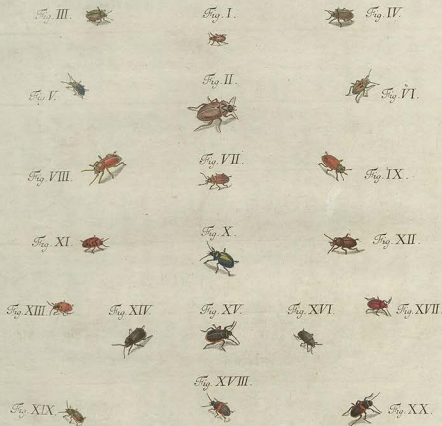 Fig. III. Fig. I. Fig. IV.
Fig. V. Fig. II. Fig. VI.
Fig. VIII. Fig. VII. Fig. IX.
Fig. XI. Fig. X. Fig. XII.
Fig. XIII. Fig. XIV. Fig. XV. Fig. XVI. Fig. XVII.
Fig. XVIII.
Fig. XIX. Fig. XX.